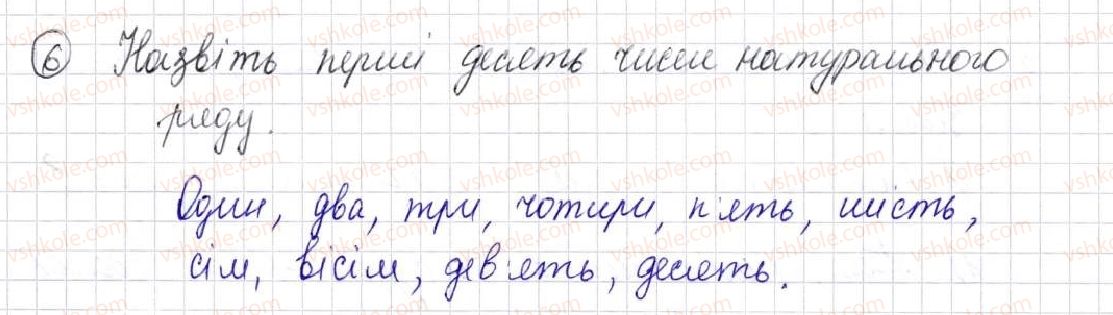 6 Назвіть перші десять чисел натурального
ряду.
Один, два, три, чотири, п'ять, шість,
сім, вісім, дев'ять, десять.